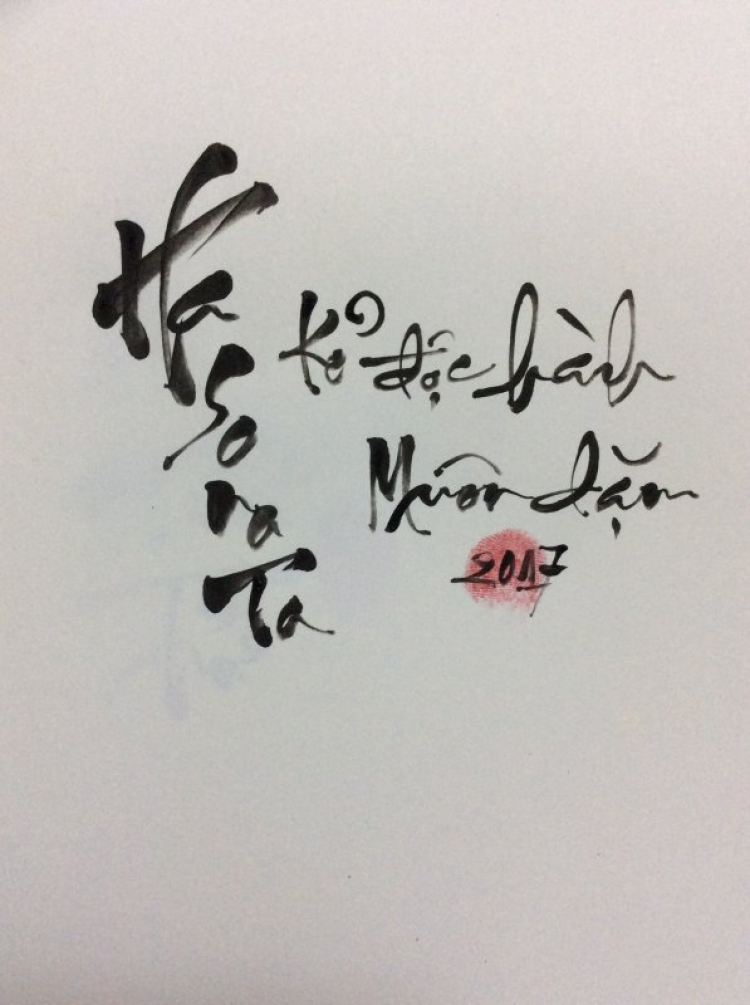 Ha
So
ra
Ta
Kẻ độc hành
Muôn dặm
2017